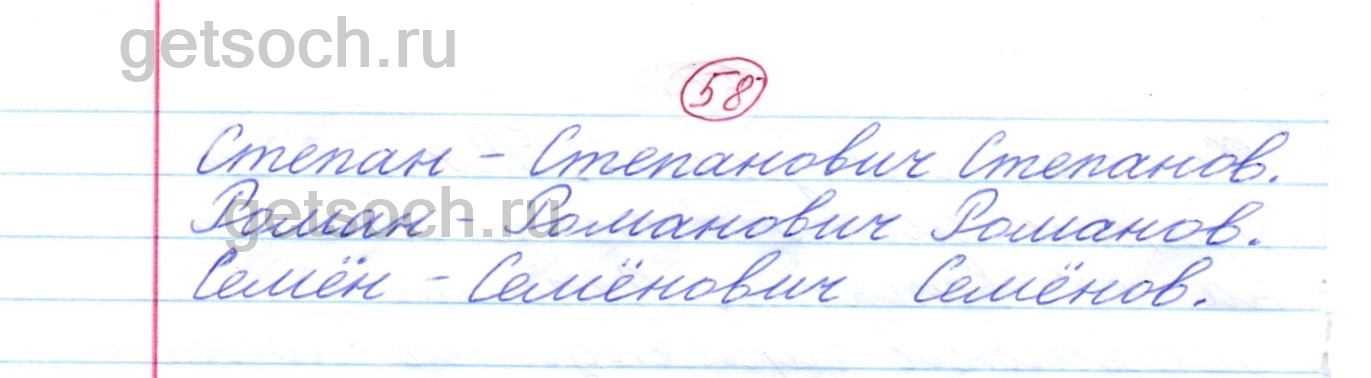 getsoch.ru
58
Степан – Степанович Степанов.
Роман – Романович Романов.
getsoch.ru
Семён – Семёнович Семёнов.